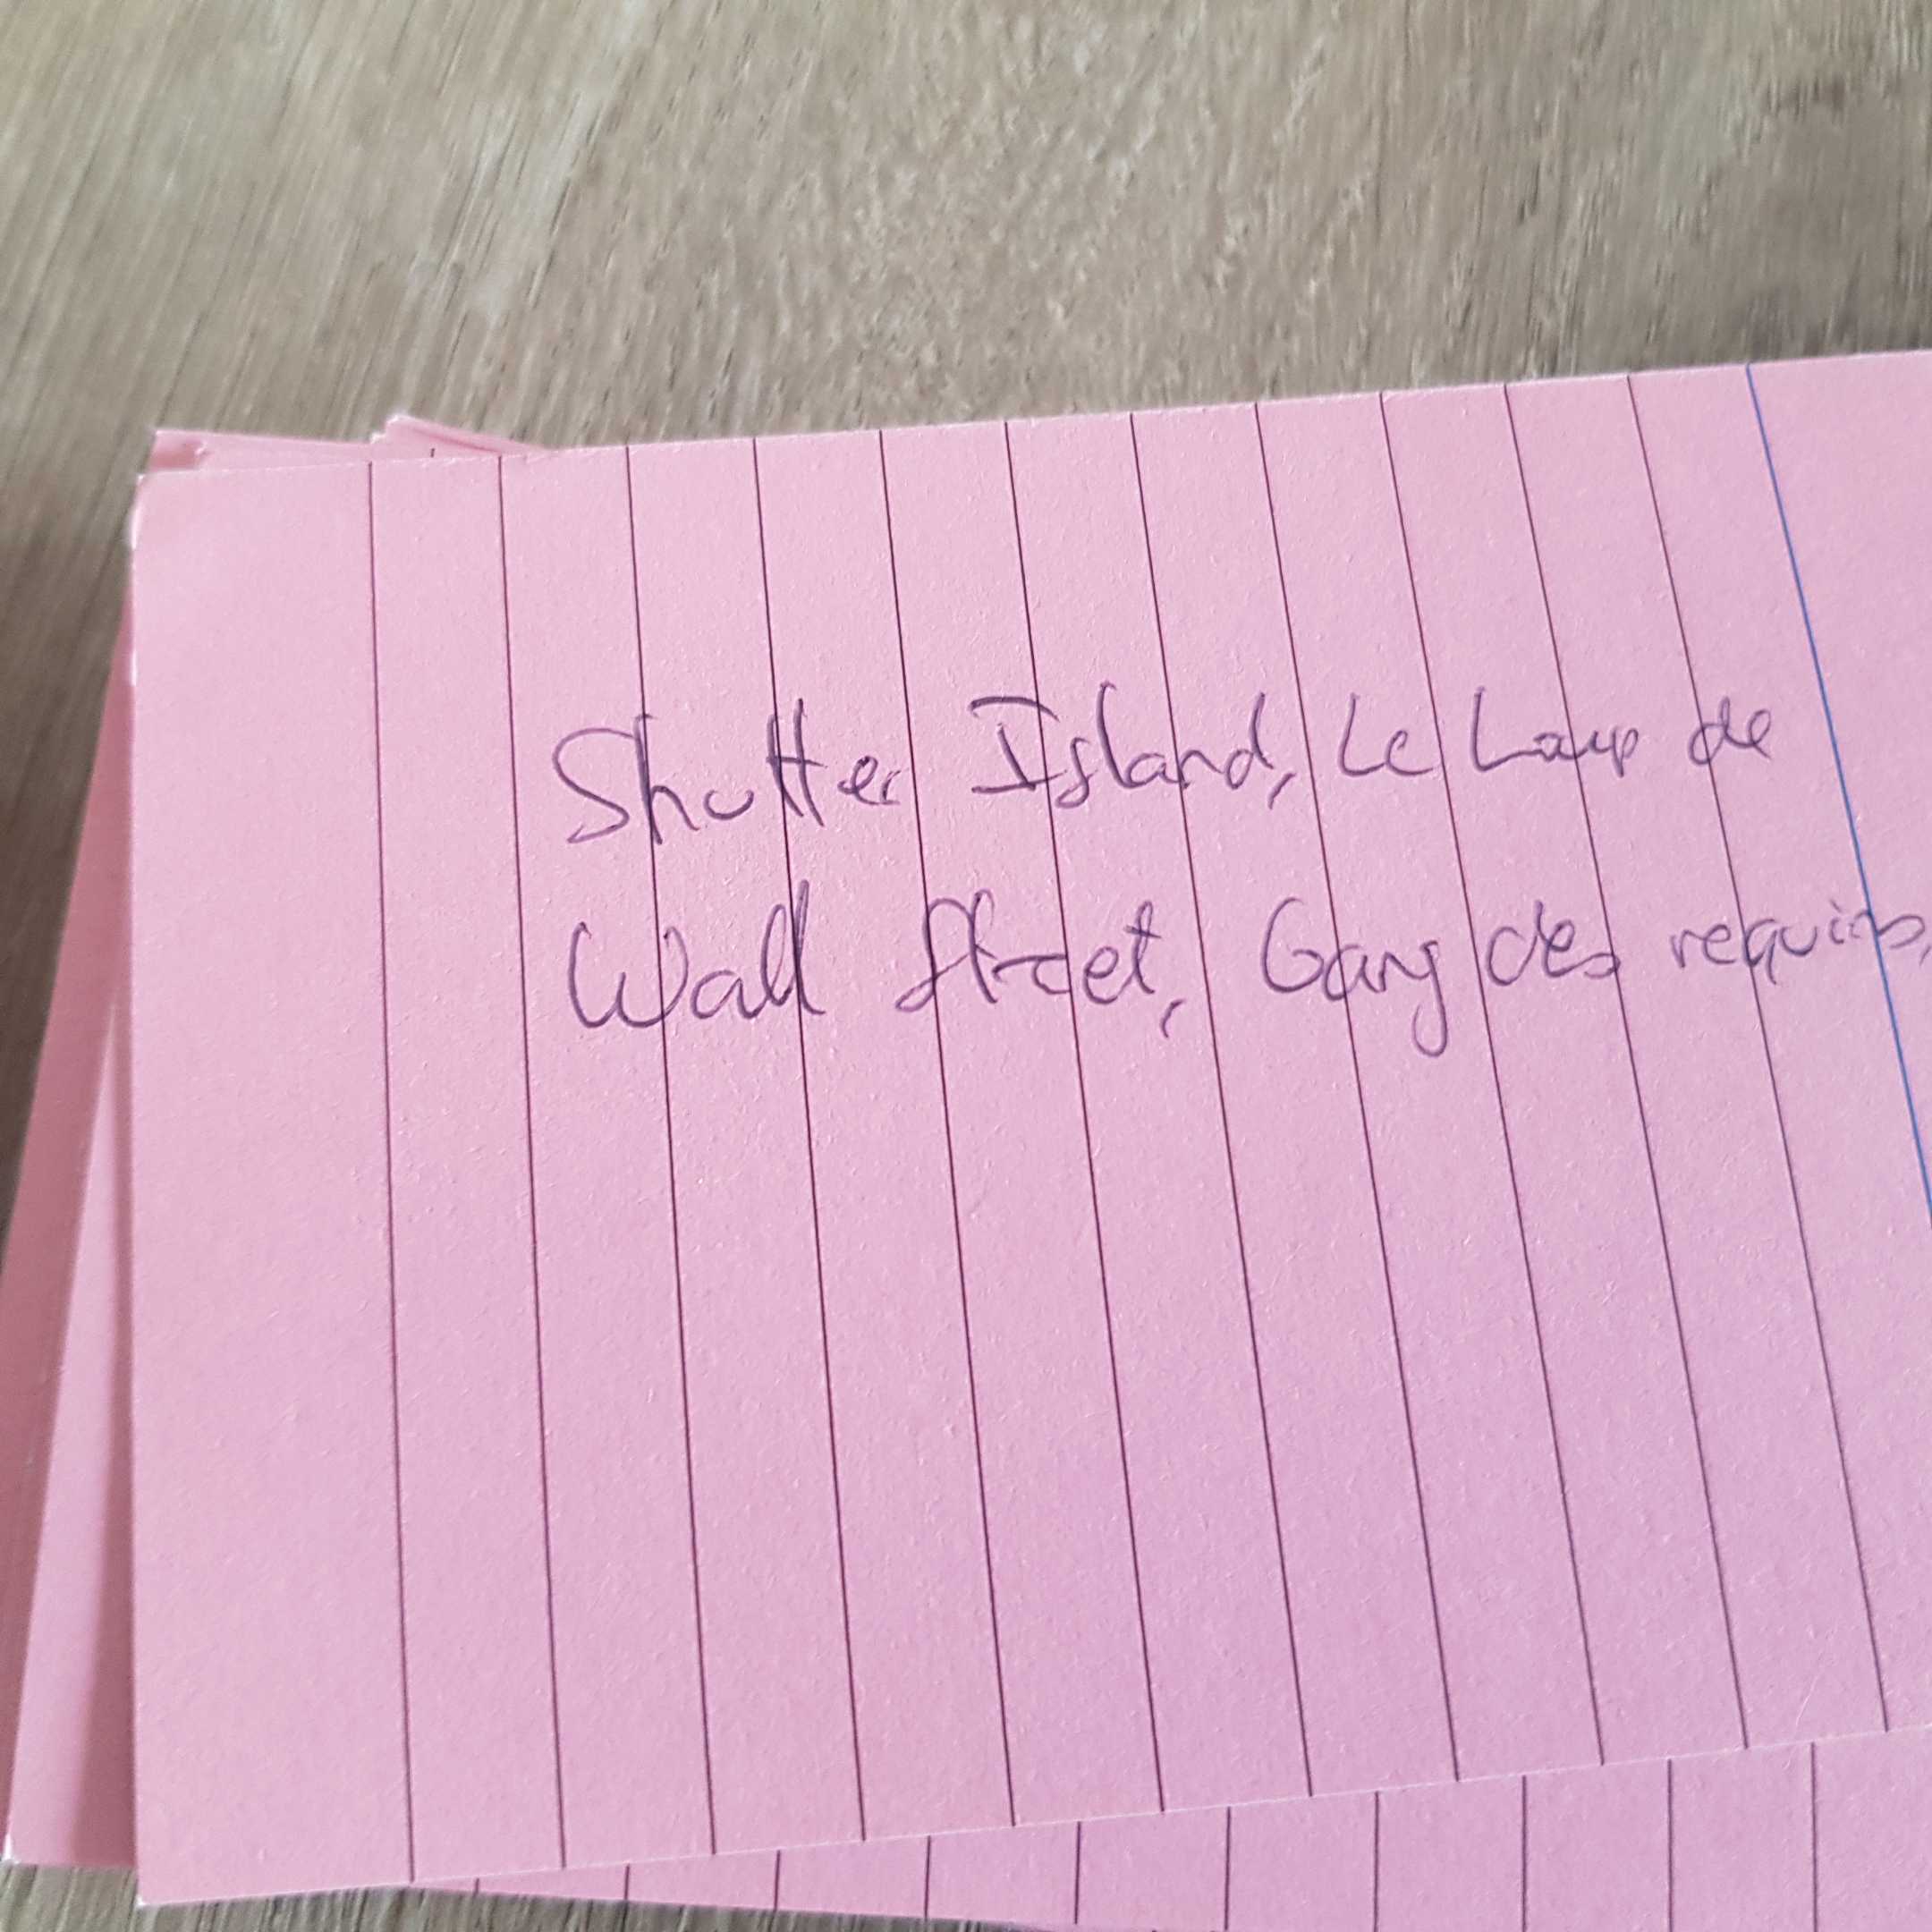 Shutter Island, Le Loup de
Wall Street, Gang des requins,